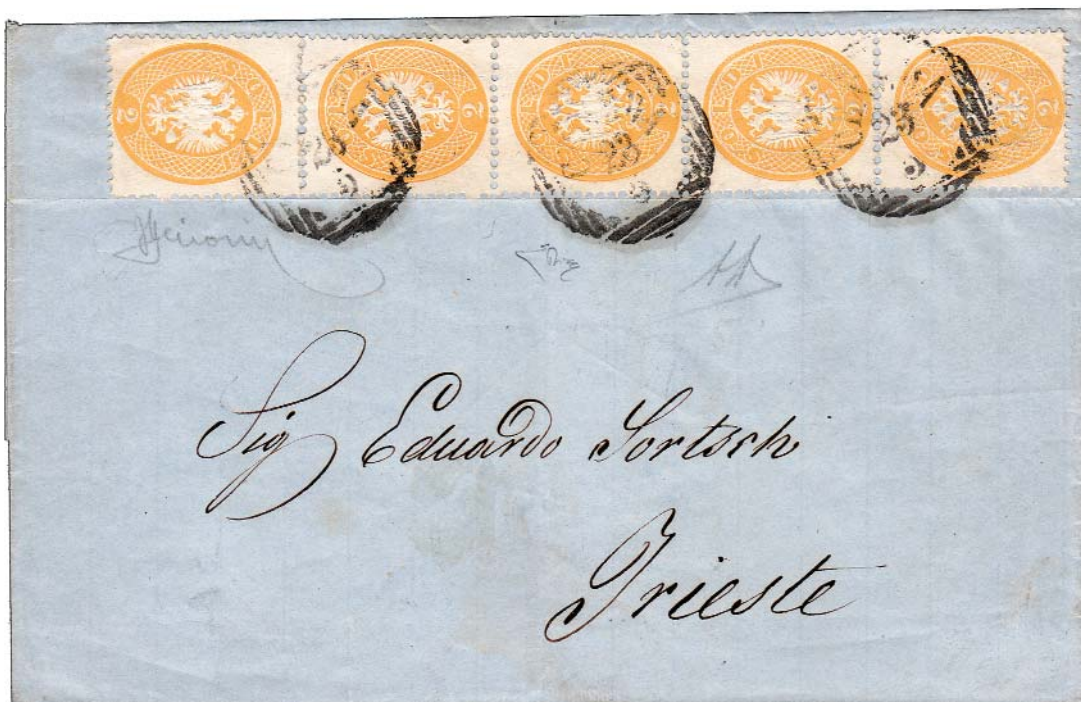 2 SOLDI 2 SOLDI 2 SOLDI 2 SOLDI 2 SOLDI
23 23 23
Sig Eduardo Sortsch
Trieste